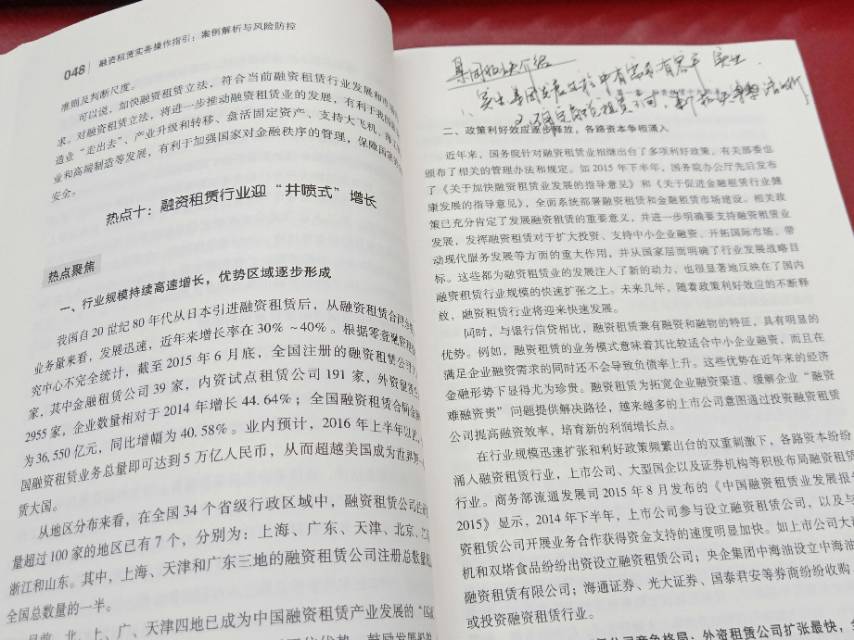 048 融资租赁实务操作指引：案例解析与风险防控
准则及判断尺度。
可以说，加快融资租赁立法，符合当前融资租赁行业发展和市
求。对融资租赁立法，将进一步推动融资租赁业的发展，有利于我国
造业“走出去”、产业升级和转移、盘活固定资产、支持大飞机、海工
业和高端制造等发展，有利于加强国家对金融秩序的管理，保障国家
安全。
热点十：融资租赁行业迎“井喷式”增长
热点聚焦
一、行业规模持续高速增长，优势区域逐步形成
我国自 20 世纪 80 年代从日本引进融资租赁后，从融资租赁合
业务量来看，发展迅速，近年来增长率在 30% ~40%。根据零壹融资租
究中心不完全统计，截至 2015 年 6 月底，全国注册的融资租赁公司
家，其中金融租赁公司 39 家，内资试点租赁公司 191 家，外资租赁
2955 家，企业数量相对于 2014 年增长 44.64%；全国融资租赁合同
为 36,550 亿元，同比增幅为 40.58%。业内预计，2016 年上半年
国融资租赁业务总量即可达到 5 万亿人民币，从而超越美国成为世界第一
赁大国。
从地区分布来看，在全国 34 个省级行政区域中，融资租赁公司
量超过 100 家的地区已有 7 个，分别为：上海、广东、天津、北京、
浙江和山东。其中，上海、天津和广东三地的融资租赁公司注册总数量
全国总数量的一半。
北、上、广、天津四地已成为中国融资租赁产业发展的
二、政策利好效应逐步释放，各路资本争相涌入
近年来，国务院针对融资租赁业相继出台了多项利好政策，有关部委也
颁布了相关的管理办法和规定。如 2015 年下半年，国务院办公厅先后发布
了《关于加快融资租赁业发展的指导意见》和《关于促进金融租赁行业健
康发展的指导意见》，全面系统部署融资租赁和金融租赁市场建设。相关政
策已充分肯定了发展融资租赁的重要意义，并进一步明确要支持融资租赁业
发展，发挥融资租赁对于扩大投资、支持中小企业融资、开拓国际市场、带
动现代服务发展等方面的重大作用，并从国家层面明确了行业发展战略目
标。这些都为融资租赁业的发展注入了新的动力，也很显著地反映在了国内
融资租赁行业规模的快速扩张之上。未来几年，随着政策利好效应的不断释
放，融资租赁行业将迎来快速发展。
同时，与银行信贷相比，融资租赁兼有融资和融物的特征，具有明显的
优势。例如，融资租赁的业务模式意味着其比较适合中小企业融资，而且在
满足企业融资需求的同时还不会导致负债率上升。这些优势在近年来的经济
金融形势下显得尤为珍贵。融资租赁为拓宽企业融资渠道、缓解企业“融资
难融资贵”问题提供解决路径，越来越多的上市公司意图通过投资融资租赁
公司提高融资效率，培育新的利润增长点。
在行业规模迅速扩张和利好政策频繁出台的双重刺激下，各路资本纷纷
涌入融资租赁行业，上市公司、大型国企以及证券机构等积极布局融资租赁
行业。商务部流通发展司 2015 年 8 月发布的《中国融资租赁业发展报告
2015》显示，2014 年下半年，上市公司参与设立融资租赁公司，以及与
资租赁公司开展业务合作获得资金支持的速度明显加快。如上市公司大
机和双塔食品纷纷出资设立融资租赁公司；央企集团中海油设立中海油
融资租赁有限公司；海通证券、光大证券、国泰君安等券商纷纷收购
或投资融资租赁行业。
外资租赁公司扩张最快，